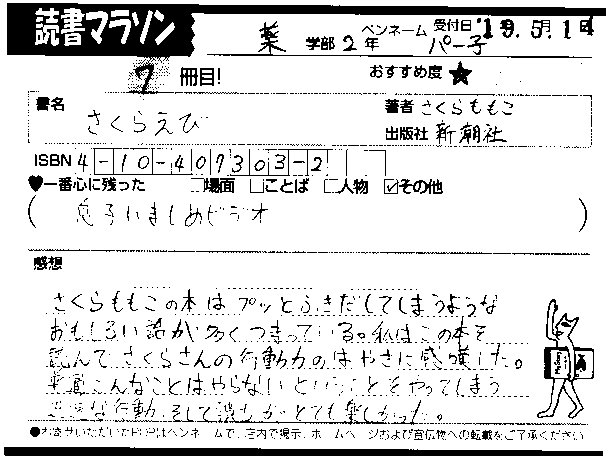 読書マラソン
薬 学部 2年 ペンネーム パー子 受付日 '19.5.14
7 冊目! おすすめ度 ★
書名 さくらえび
著者 さくらももこ
出版社 新潮社
ISBN 4-10-407303-2
♥一番心に残った □場面 □ことば □人物 ☑その他
( 息子いましめビデオ )
感想
さくらももこの本は プッとふきだしてしまうような
おもしろい話が多くつまっている。私はこの本を
読んで さくらさんの行動力のはやさに感嘆した。
普通こんなことはやらない ということをやってしまう
な行動、そして読むが とても楽しかった。
●お寄せいただいたPOPはペンネームで、店内で掲示、ホームページおよび宣伝物への転載をご了承ください